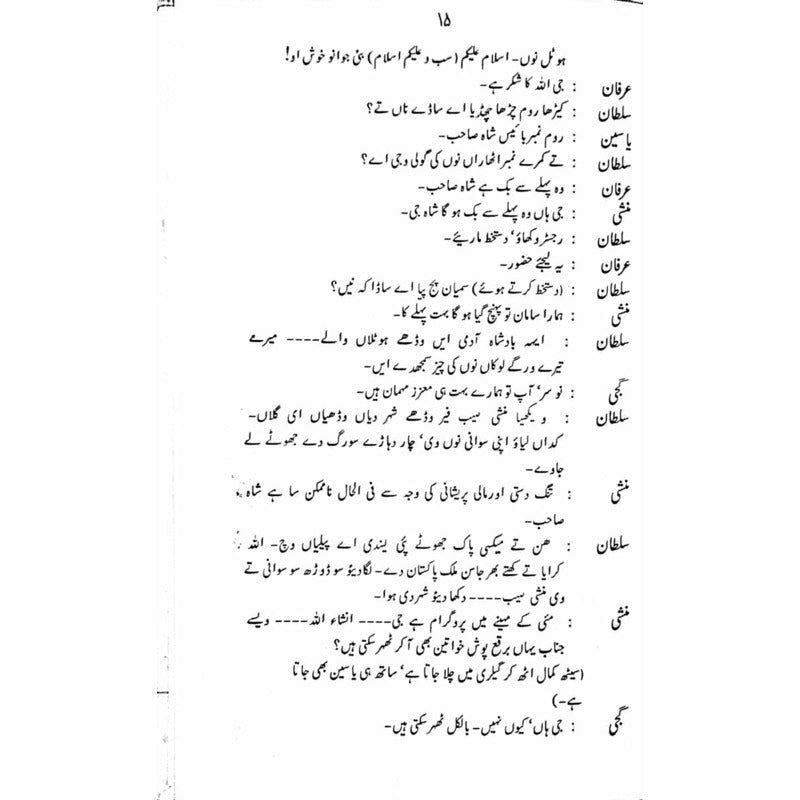 ۱۵
ہوٹل نوں۔ اسلام علیکم (سب و علیکم اسلام) بئی جوانو خوش او!
عرفان : جی اللہ کا شکر ہے۔
سلطان : کیڑھا روم چڑھا چھڈیا اے ساڈے ناں تے؟
یاسین : روم نمبر بائیس شاہ صاحب۔
سلطان : تے کمرے نمبر اٹھاراں نوں کی گولی وجی اے؟
عرفان : وہ پہلے سے بک ہے شاہ صاحب۔
منشی : جی ہاں وہ پہلے سے بک ہو گا شاہ جی۔
سلطان : رجسٹر وکھاؤ‘ دستخط ماریئے۔
عرفان : یہ لیجئے حضور۔
سلطان : (دستخط کرتے ہوئے) سمیان پج پیا اے ساڈا کہ نیں؟
منشی : ہمارا سامان تو پہنچ گیا ہو گا بہت پہلے کا۔
سلطان : ایہہ بادشاہ آدمی ایں وڈھے ہوٹلاں والے---- میرے
تیرے ورگے لوکاں نوں کی چیز سمجھدے ایں۔
گجی : نو سر‘ آپ تو ہمارے بہت ہی معزز مہمان ہیں۔
سلطان : ویکھیا منشی سیب فیر وڈھے شہر دیاں وڈھیاں ای گلاں۔
کداں لیاؤ اپنی سوانی نوں وی‘ چار دہاڑے سورگ دے جھوٹے لے
جاوے۔
منشی : تنگ دستی اور مالی پریشانی کی وجہ سے فی الحال ناممکن سا ہے شاہ
صاحب۔
سلطان : ھن تے میکسی پاک جھوٹے پئی لیندی اے پیلیاں وچ۔ اللہ
کرایا تے کھتے بھر جاسن ملک پاکستان دے۔ لگا دیئو سو ڈوڑھ سو سوانی تے
وی منشی سیب---- دکھا دیئو شہر دی ہوا۔
منشی : مئی کے مہینے میں پروگرام ہے جی---- انشاء اللہ---- ویسے
جناب یہاں برقع پوش خواتین بھی آ کر ٹھہر سکتی ہیں؟
(سیٹھ کمال اٹھ کر گیلری میں چلا جاتا ہے‘ ساتھ ہی یاسین بھی جاتا
ہے۔)
گجی : جی ہاں‘ کیوں نہیں۔ بالکل ٹھہر سکتی ہیں۔